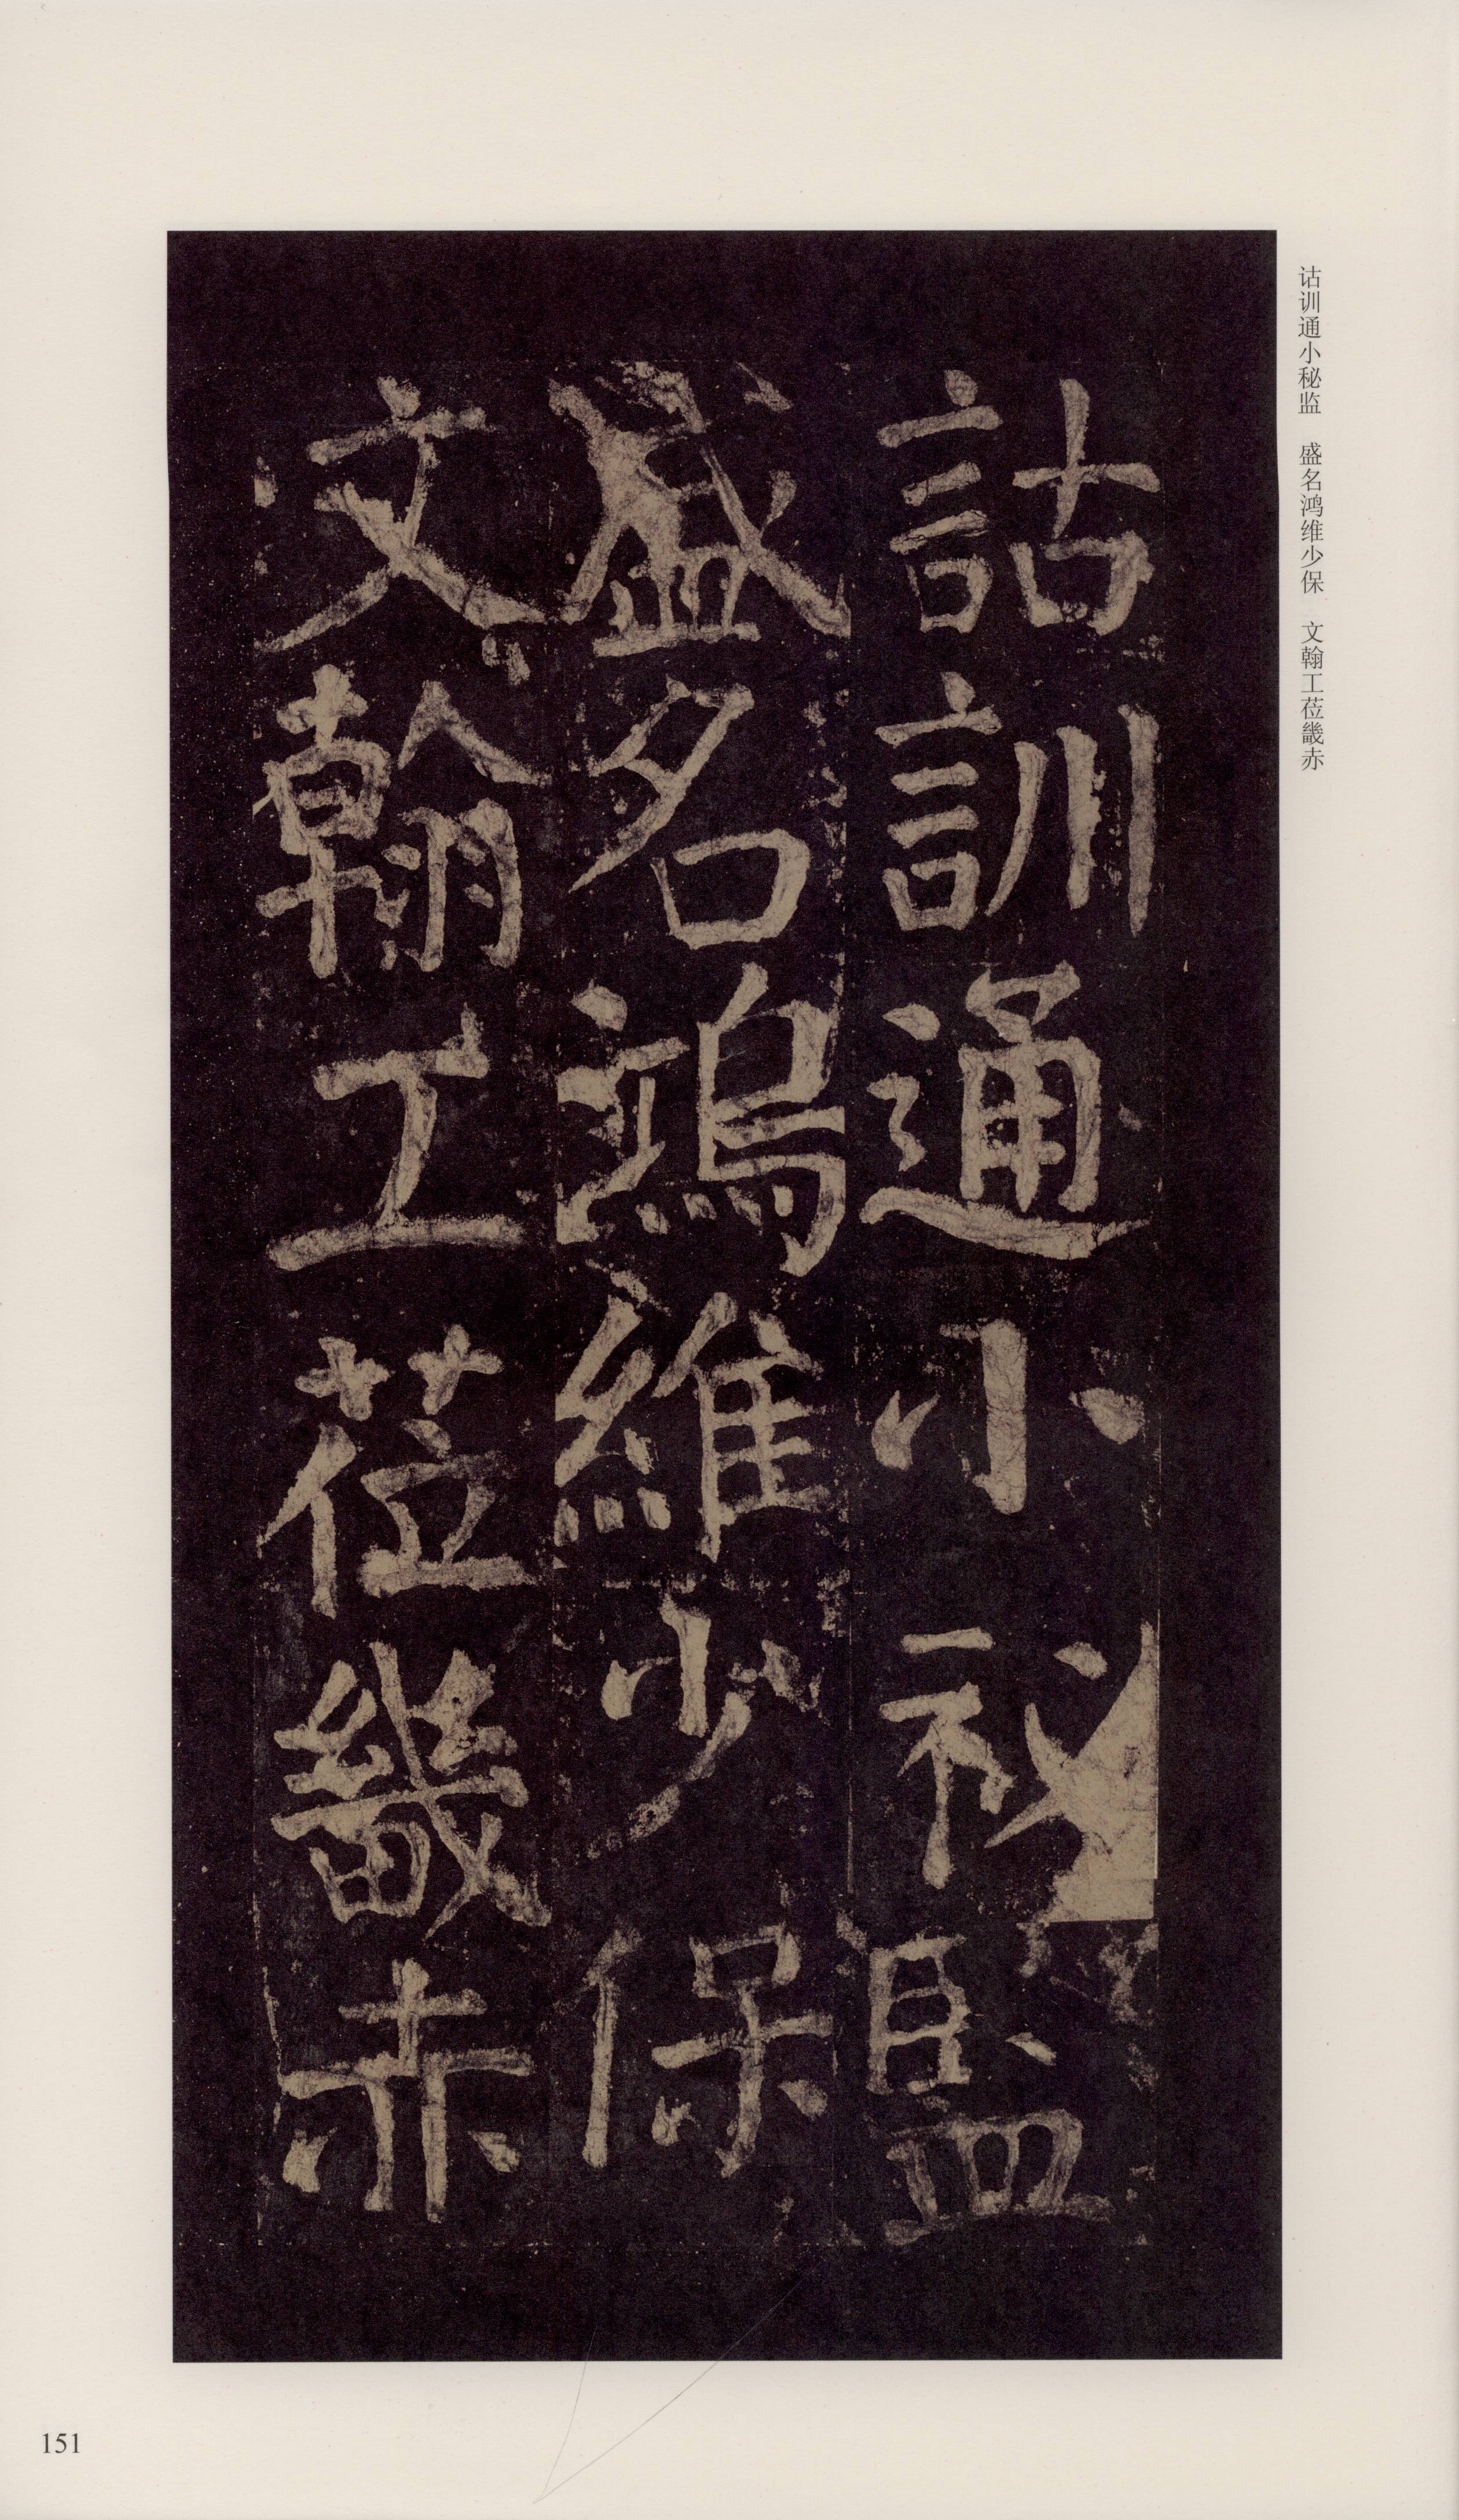 诂训通小秘监　盛名鸿维少保　文翰工莅畿赤
詁訓通小祕監
盛名鴻維少保
文翰工莅畿赤
151